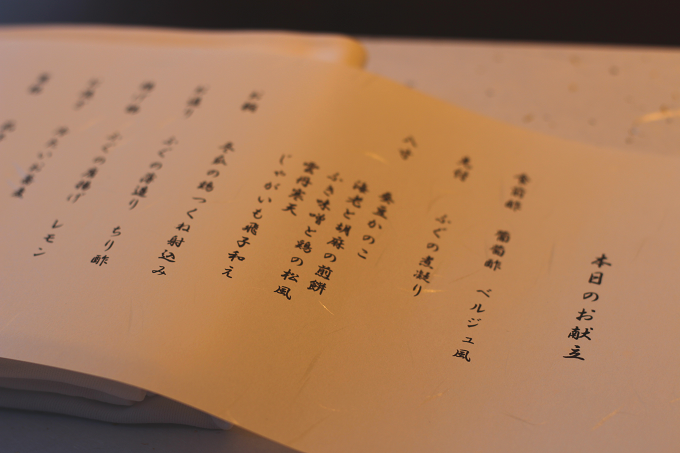 本日のお献立
食前酢 葡萄酢 ベルジュ風
先付 ふぐの煮凝り
八寸 蚕豆かのこ
海老と胡麻の煎餅
ふき味噌と鶏の松風
雲丹寒天
じゃがいも飛子和え
お椀 冬瓜の鶏つくね射込み
お造り ふぐの薄造り ちり酢
ふぐの唐揚げ レモン